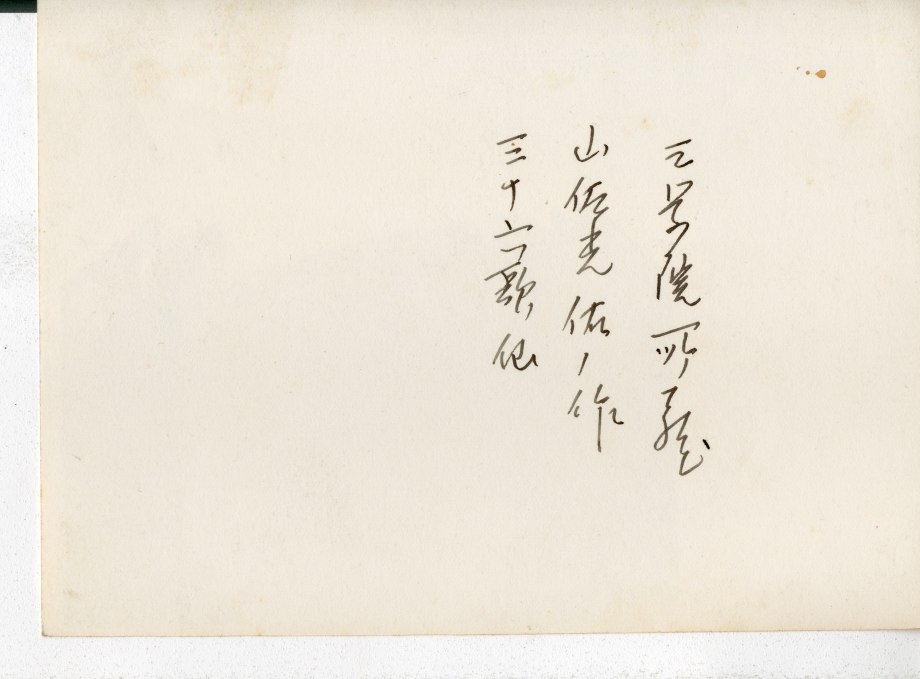 三学院所蔵
山佐光佑ノ作
三十六歌仙